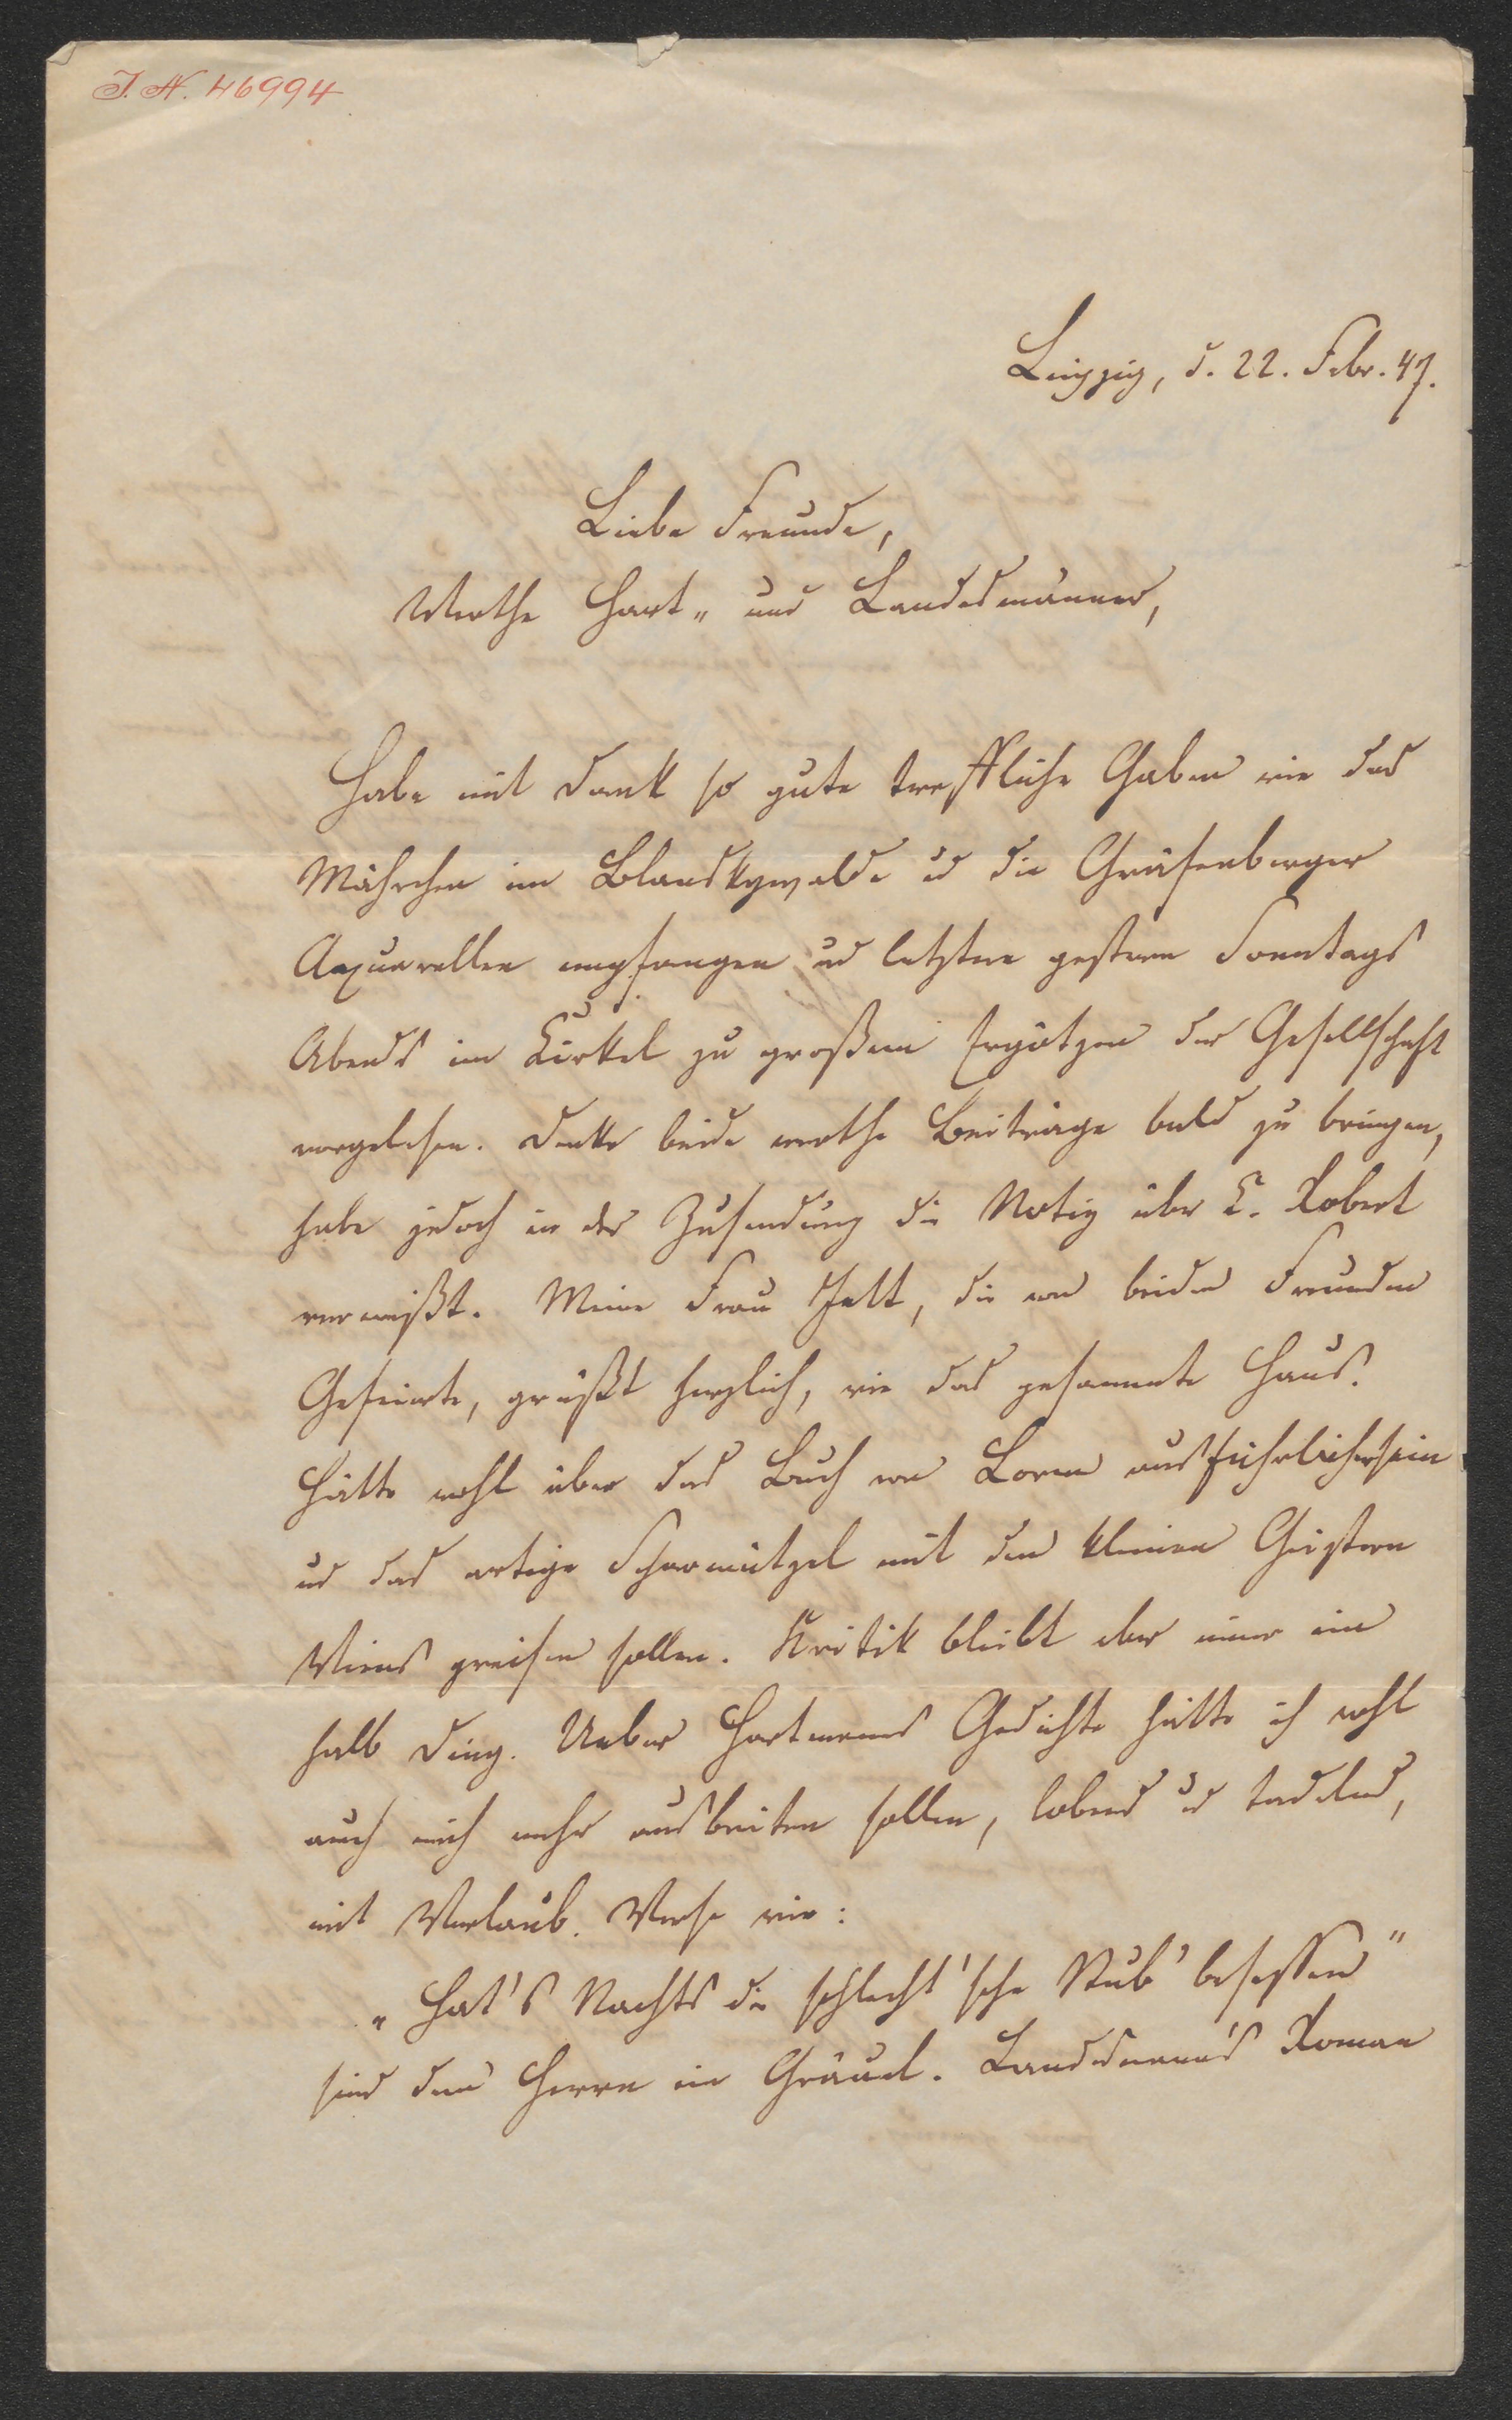 J. N. 46994
Leipzig, d. 22. Febr. 47.
Liebe Freunde,
Werthe Hart- und Landesmänner,
Habe mit Dank so gute treffliche Gaben wie das
Mährchen im Blanskywalde u die Gräfenberger
Aquarellen empfangen und letztere gestern Sonntags
Abends im Cirkel zu großem Ergötzen der Gesellschaft
vorgelesen. Denke beide werthe Beiträge bald zu bringen,
habe jedoch in der Zusendung die Notiz über L. Robert
vermißt. Meine Frau, die von beiden Freunden
Gefeierte, grüßt herzlich, wie das gesammte Haus.
Hätte wohl über das Buch von Lorm ausführlicher sein
und das artige Scharmützel mit den kleinen Geistern
Wiens preisen sollen. Kritik bleibt aber immer ein
halb Ding. Ueber Hartmanns Gedichte hätte ich wohl
auch mich mehr ausbreiten sollen, lobend und tadelnd,
mit Verlaub. Verse wie:
„Hat's Nachts die schlecht'sche Stub' besessen"
sind dem Herrn ein Gräuel. Landesmann's Roman